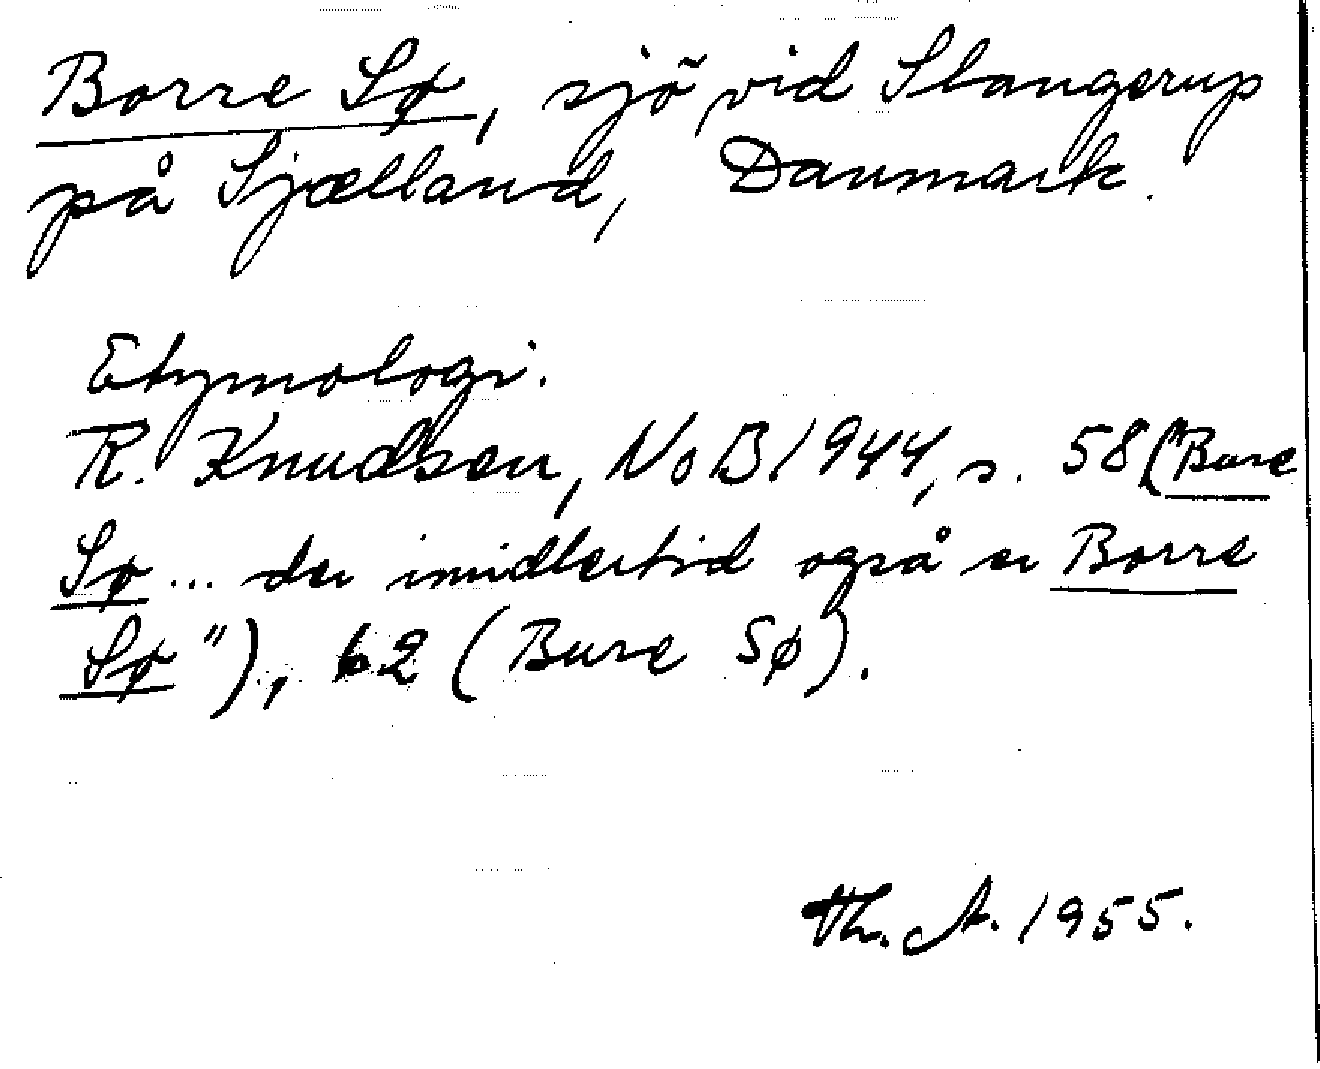 Borre Sø, sjö vid Slangerup
på Sjælland, Danmark.
Etymologi.
R. Knudsen, NoB 1944, s. 58 ("Bure
Sø ... der imidlertid også er Borre
Sø"), 62 (Bure Sø).
Th. A. 1955.